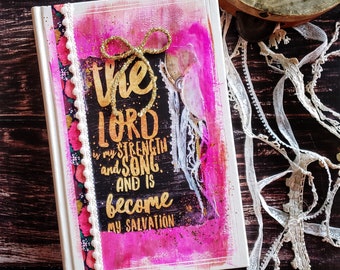 the
LORD
is my STRENGTH
and SONG
AND IS
become
MY SALVATION